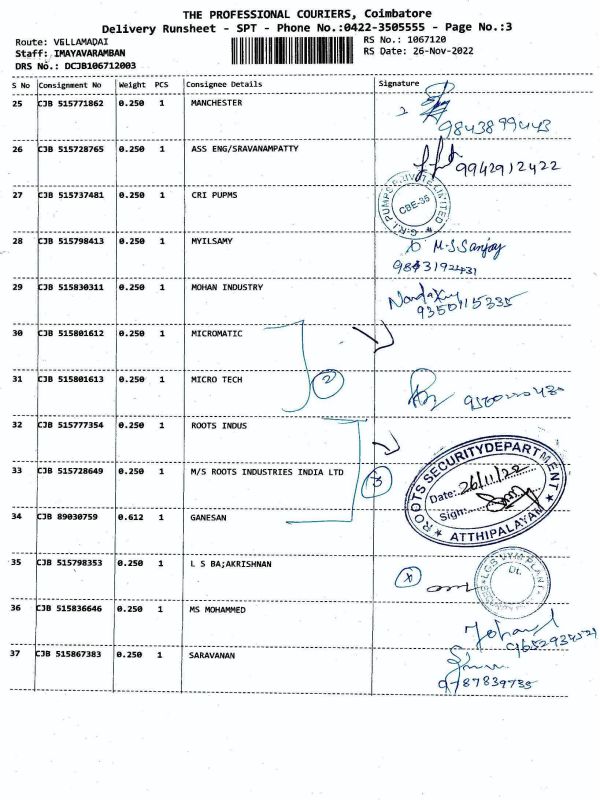 THE PROFESSIONAL COURIERS, Coimbatore
Delivery Runsheet - SPT - Phone No.:0422-3505555 - Page No.:3
Route: VELLAMADAI
RS No.: 1067120
Staff: IMAYAVARAMBAN
RS Date: 26-Nov-2022
DRS No.: DCJB106712003
S No Consignment No Weight PCS Consignee Details Signature
25 CJB 515771862 0.250 1 MANCHESTER
9843899443
26 CJB 515728765 0.250 1 ASS ENG/SRAVANAMPATTY
9942912422
27 CJB 515737481 0.250 1 CRI PUPMS
C.R.I. PUMPS PRIVATE LIMITED
CBE-35
28 CJB 515798413 0.250 1 MYILSAMY
M.S.Sanjoy
9843192431
29 CJB 515830311 0.250 1 MOHAN INDUSTRY
9350115335
30 CJB 515801612 0.250 1 MICROMATIC
31 CJB 515801613 0.250 1 MICRO TECH
2
32 CJB 515777354 0.250 1 ROOTS INDUS
33 CJB 515728649 0.250 1 M/S ROOTS INDUSTRIES INDIA LTD
3
ROOTS SECURITYDEPARTMENT
Date: 26/11/22
Sign:
ATTHIPALAYAM
34 CJB 89030759 0.612 1 GANESAN
35 CJB 515798353 0.250 1 L S BA;AKRISHNAN
Dt.
36 CJB 515836646 0.250 1 MS MOHAMMED
37 CJB 515867383 0.250 1 SARAVANAN
9787839735